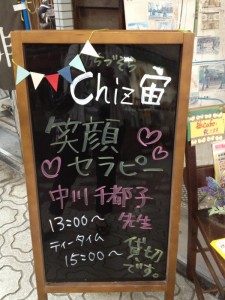 ちづそら
Chiz宙
笑顔
セラピー
中川千都子
先生
13:00〜
ティータイム
15:00〜
貸切
です。